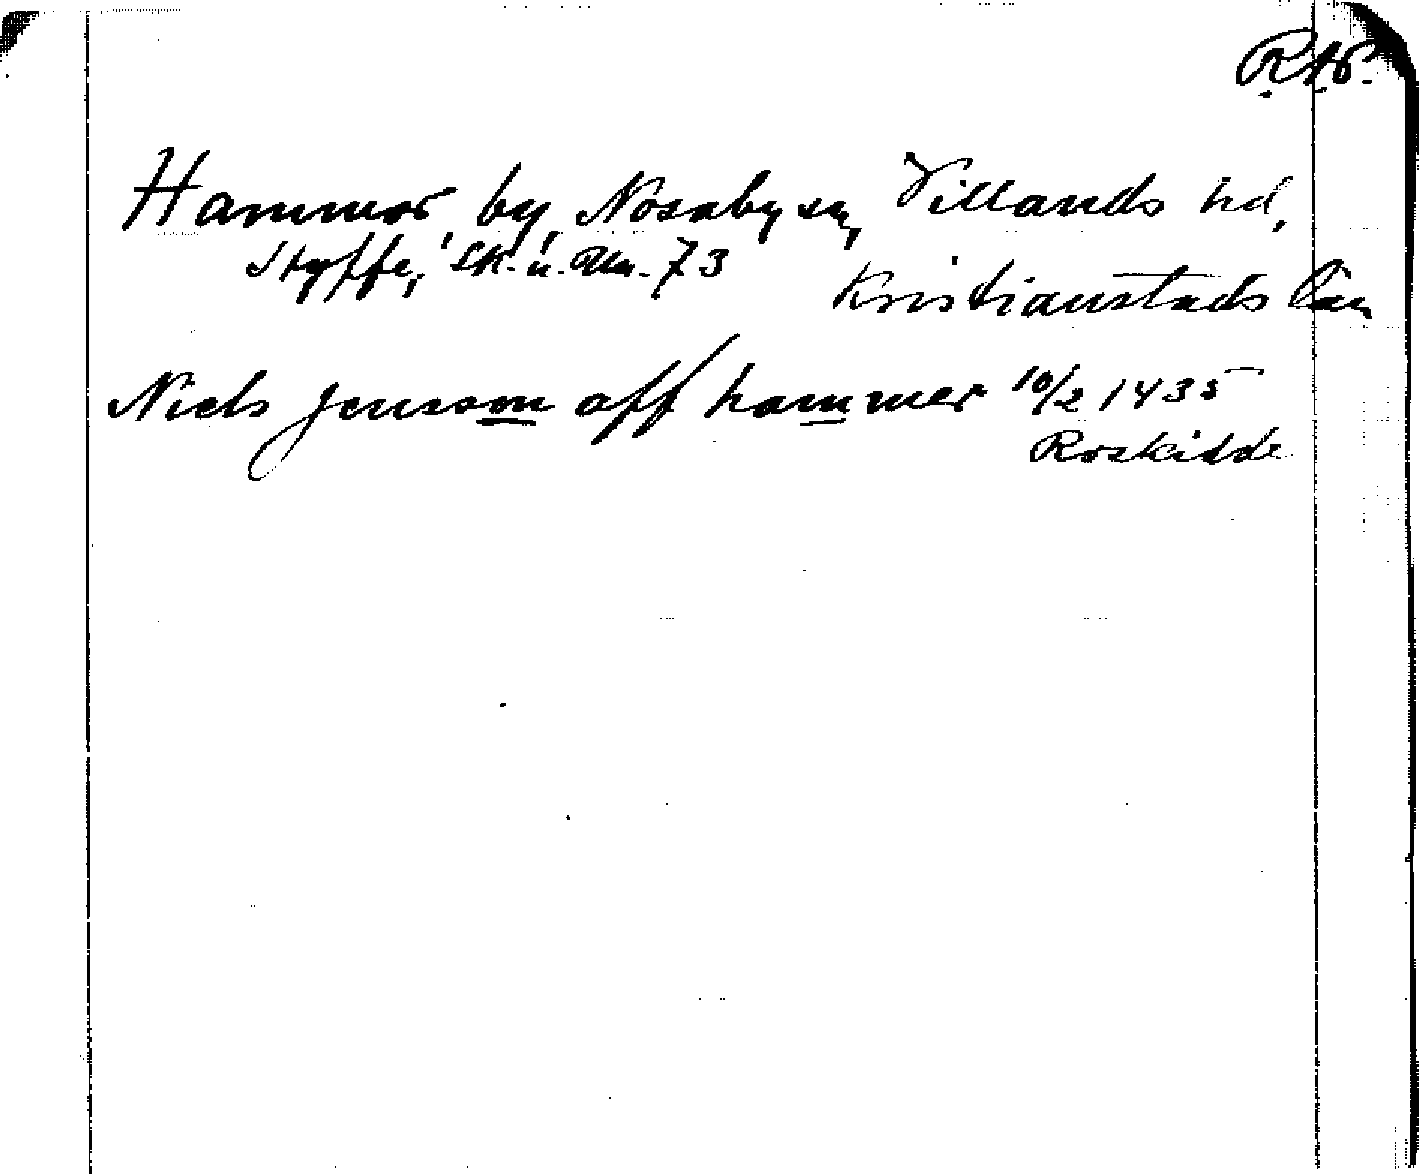 Hammar, by, Nosaby sn, Villands hd,
Styffe, Sk. u. Un. 73
Kristianstads län
Niels Jenssom off hammer 10/2 1435
Roskilde